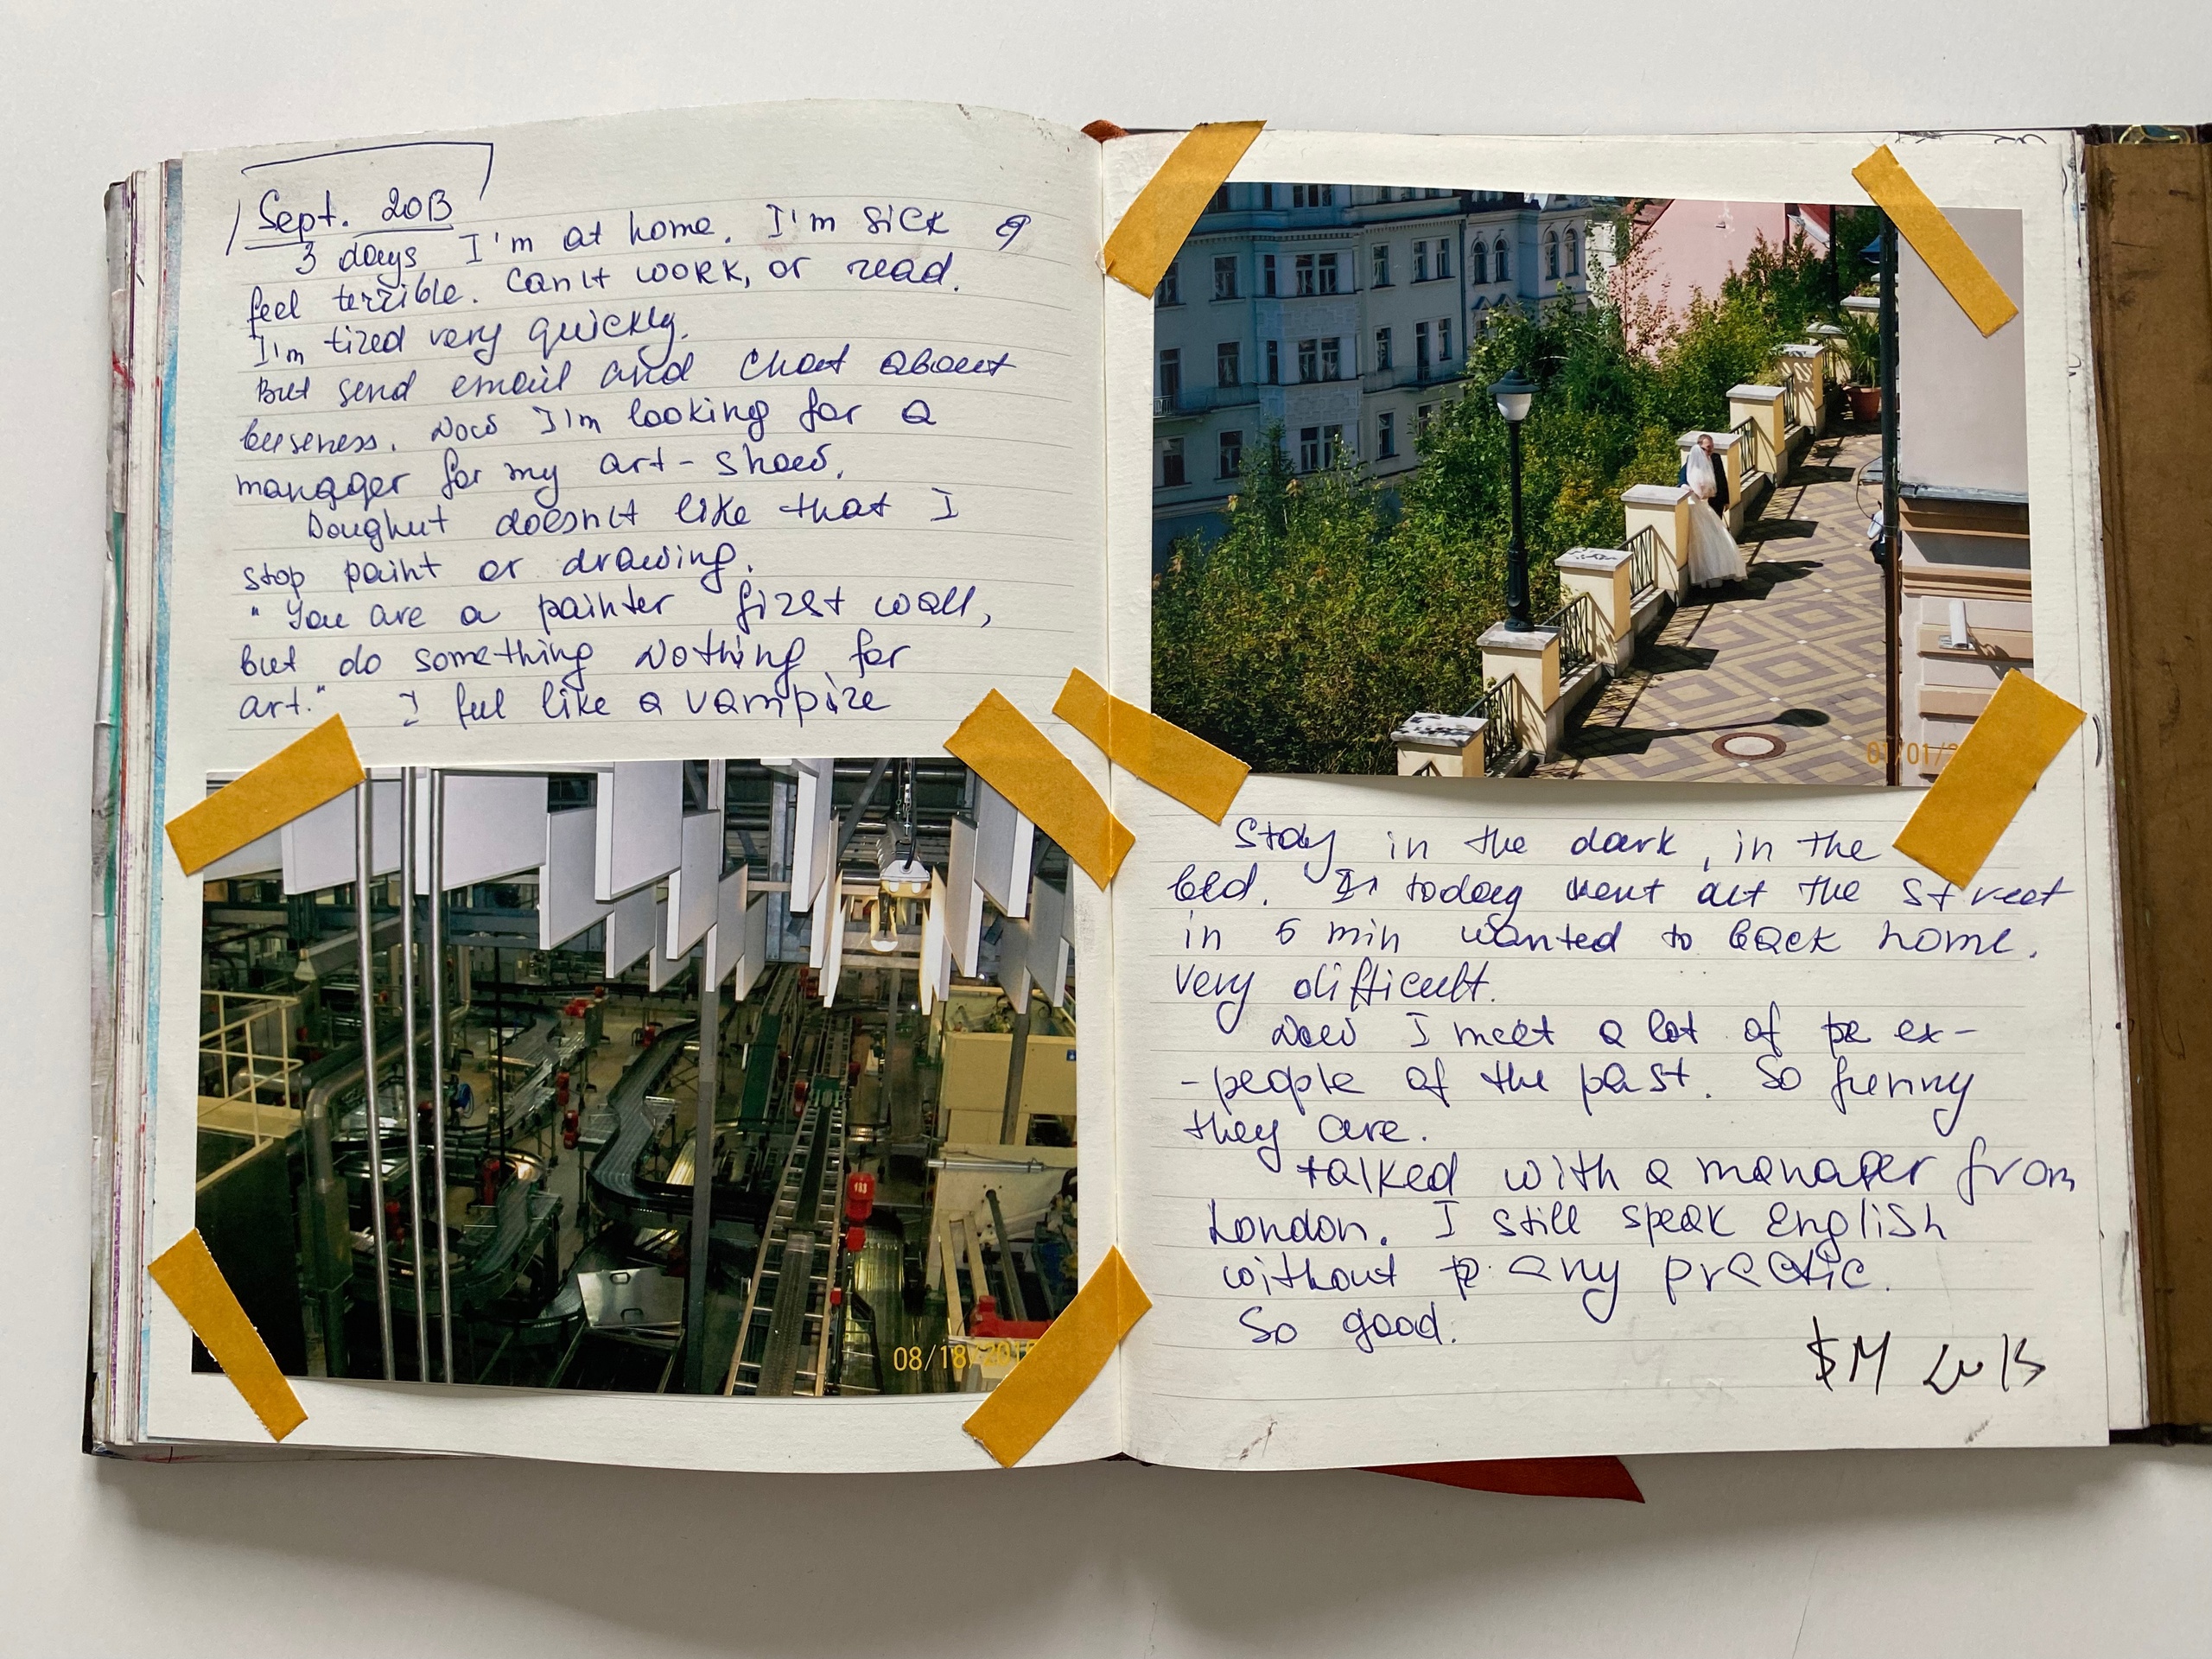 Sept. 2013
3 days I'm at home. I'm sick &
feel terrible. Can't work, or read.
I'm tired very quickly.
But send email and chat about
buseness. Now I'm looking for a
manager for my art-show.
Doughut doesn't like that I
stop paint or drawing.
"You are a painter first wall,
but do something nothing for
art." I feel like a vampire
08/18/201
01/01/2
Stay in the dark, in the
bed. today went out the street
in 5 min wanted to back home.
Very difficult.
Now I meet a lot of ex-
-people of the past. So funny
they are.
talked with a manager from
London. I still speak English
without any practic.
So good.
$M 2013